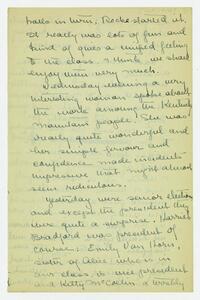 halls in turn, Rocke started it.
It really was lots of fun and
kind of gives a unified feeling
to the class. I think we shall
enjoy them very much.
Wednesday evening a very
interesting woman spoke about
the work among the Kentucky
mountain people. She was
really quite wonderful and
her simple fervour and
confidence made incidents
impressive that might almost
seem ridiculous.
Yesterday were senior elections
and except the president they
were quite a surprise. Harriet
Bradford was president of
course; Emily Van Horn,
sister of Alice who is in
our class is vice president
and Katty McCollin, a weekly